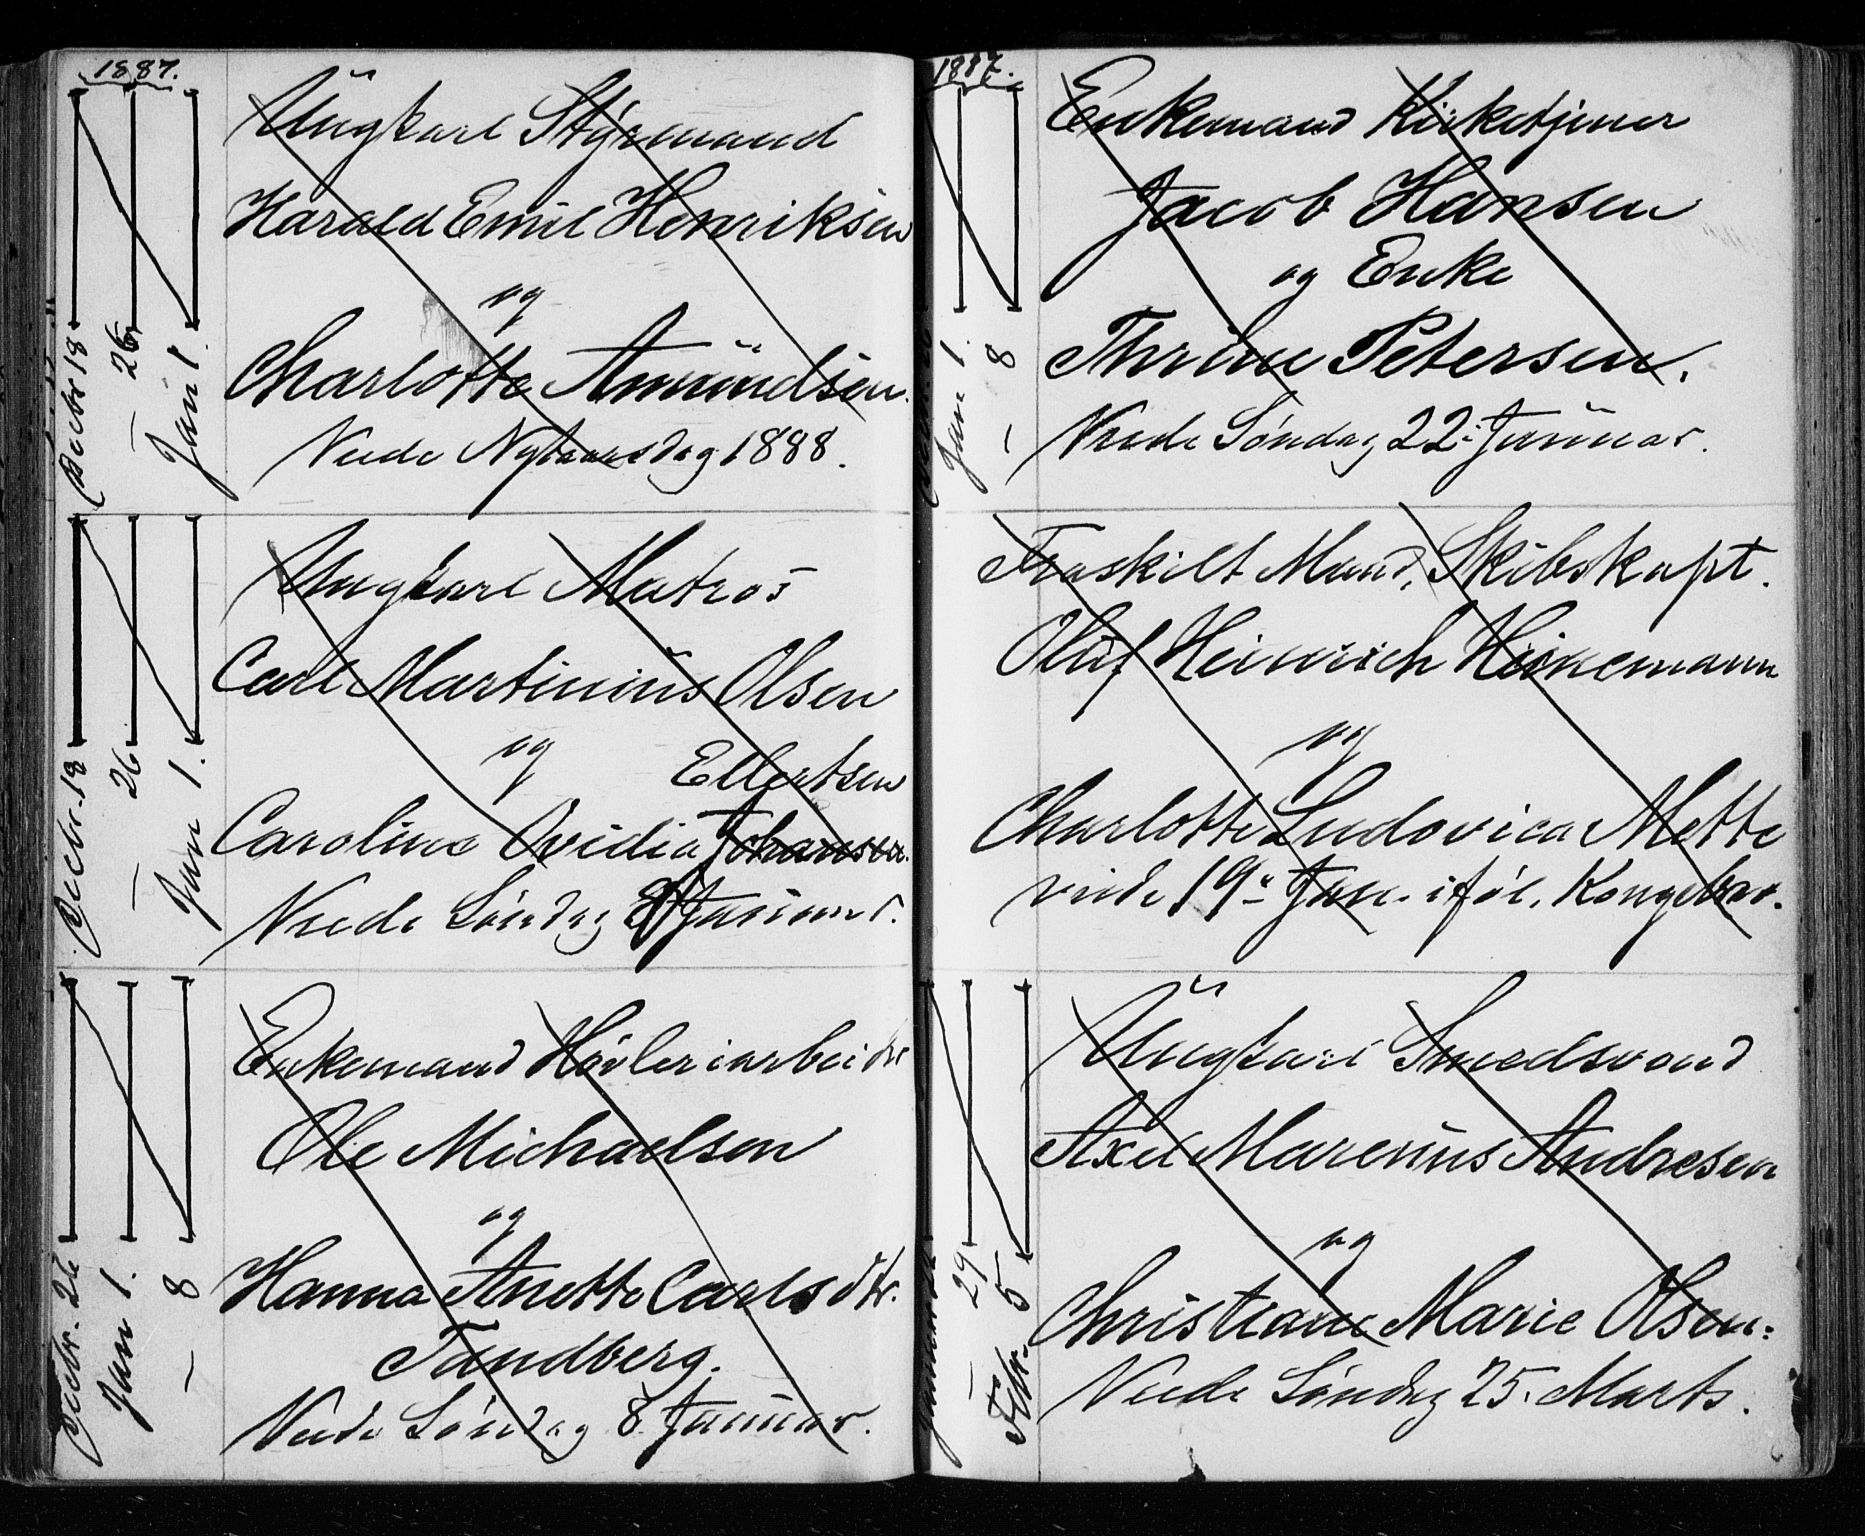 1887.
Decbr 18
— 26
Jan 1.
Ungkarl Styrmand
Harald Emil Henriksen
og
Charlotte Amundsen.
Viede Nytaarsdag 1888.
Decbr. 18
— 26
Jan 1.
Ungkarl Matros
Carl Martinius Olsen
og Ellertsen
Caroline Ovidia Johansen.
Viede Søndag 8 Januar.
Decbr. 26
Jan 1.
— 8
Enkemand Høvleriarbeider
Ole Michaelsen
og
Hanna Anette Carlsdtr.
Tandberg.
Viede Søndag 8 Januar.
1887.
Jan 1.
— 8
Enkemand Kirketjener
Jacob Hansen
og Enke
Thrine Petersen.
Viede Søndag 22: Januar.
Fraskilt Mand, Skibskapt.
Oluf Heinrich Heinemann
og
Charlotte Ludovica Mette
viede 19de Jan. iføl. Kongebrev.
Januar 22
— 29
Febr. 5
Ungkarl Smedsvend
Axel Marenius Andresen
og
Christiane Marie Olsen.
Viede Søndag 25. Marts.